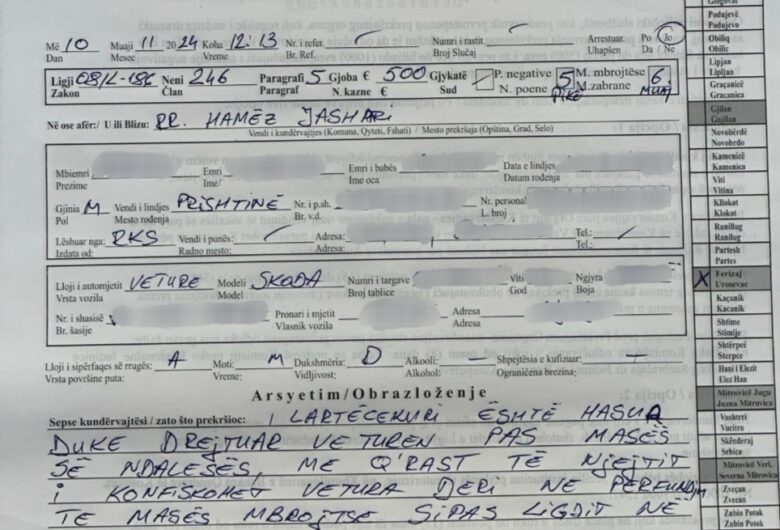 Më 10 Muaji 11 2024 Koha 12:13 Nr. i refer. Numri i rastit Arrestuar. Po Jo
Dan Mesec Vreme Br. Ref. Broj Slučaj Uhapšen Da / Ne
Ligji 08/L-186 Neni 246 Paragrafi 5 Gjoba € 500 Gjykatë P. negative 5 M. mbrojtëse 6
Zakon Član Paragraf N. kazne € Sud N. poene PIKË M. zabrane MUAJ
Në ose afër:/ U ili Blizu: RR. HAMËZ JASHARI
Vendi i kundërvajtjes (Komuna, Qyteti, Fshati) / Mesto prekršaja (Opština, Grad, Selo)
Mbiemri Emri Emri i babës Data e lindjes
Prezime Ime/ Ime oca Datum rođenja
Gjinia M Vendi i lindjes PRISHTINË Nr. i p.sh. Nr. personal
Pol Mesto rođenja Br. v.d. L. broj
Lëshuar nga: RKS Vendi i punës: Adresa: Tel.:
Izdata od: Radno mesto: Adresa: Tel.:
Lloji i automjetit VETURE Modeli SKODA Numri i targave Viti Ngjyra
Vrsta vozila Model Broj tablice God Boja
Nr. i shasisë Pronari i mjetit Adresa
Br. šasije Vlasnik vozila Adresa
Lloji i sipërfaqes së rrugës: A Moti: M Dukshmëria: D Alkooli: Shpejtësia e kufizuar:
Vrsta površine puta: Vreme: Vidljivost: Alkohol: Ograničena brezina:
Arsyetim/Obrazloženje
Sepse kundërvajtësi / zato što prekršioc: I LARTËCEKURI ËSHTË HASUR
DUKE DREJTUAR VETUREN PAS MASËS
SË NDALESËS, ME Q'RAST TË NJEJTIT
I KONFISKOHET VETURA DERI NE PERFUNDIM
TE MASËS MBROJTSE SIPAS LIGJIT NË
Podujevë
Podujevo
Obiliq
Obilic
Lipjan
Lipljan
Graçanicë
Gracanica
Gjilan
Gnjilan
Novobërdë
Novobrdo
Kamenicë
Kamenica
Viti
Vitina
Kllokot
Klokot
Ranillug
Ranilug
Partesh
Partes
X Ferizaj
Urosevac
Kaçanik
Kacanik
Shtime
Stimlje
Shtërpcë
Sterpce
Hani i Elezit
Elez Han
Mitrovicë Jugu
Juzna Mitrovica
Vushtrri
Vucitrn
Skënderaj
Srbica
Mitrovicë Veri.
Severna Mitrovica
Zveçan
Zvečan
Zubin Potok
Zubin Potok